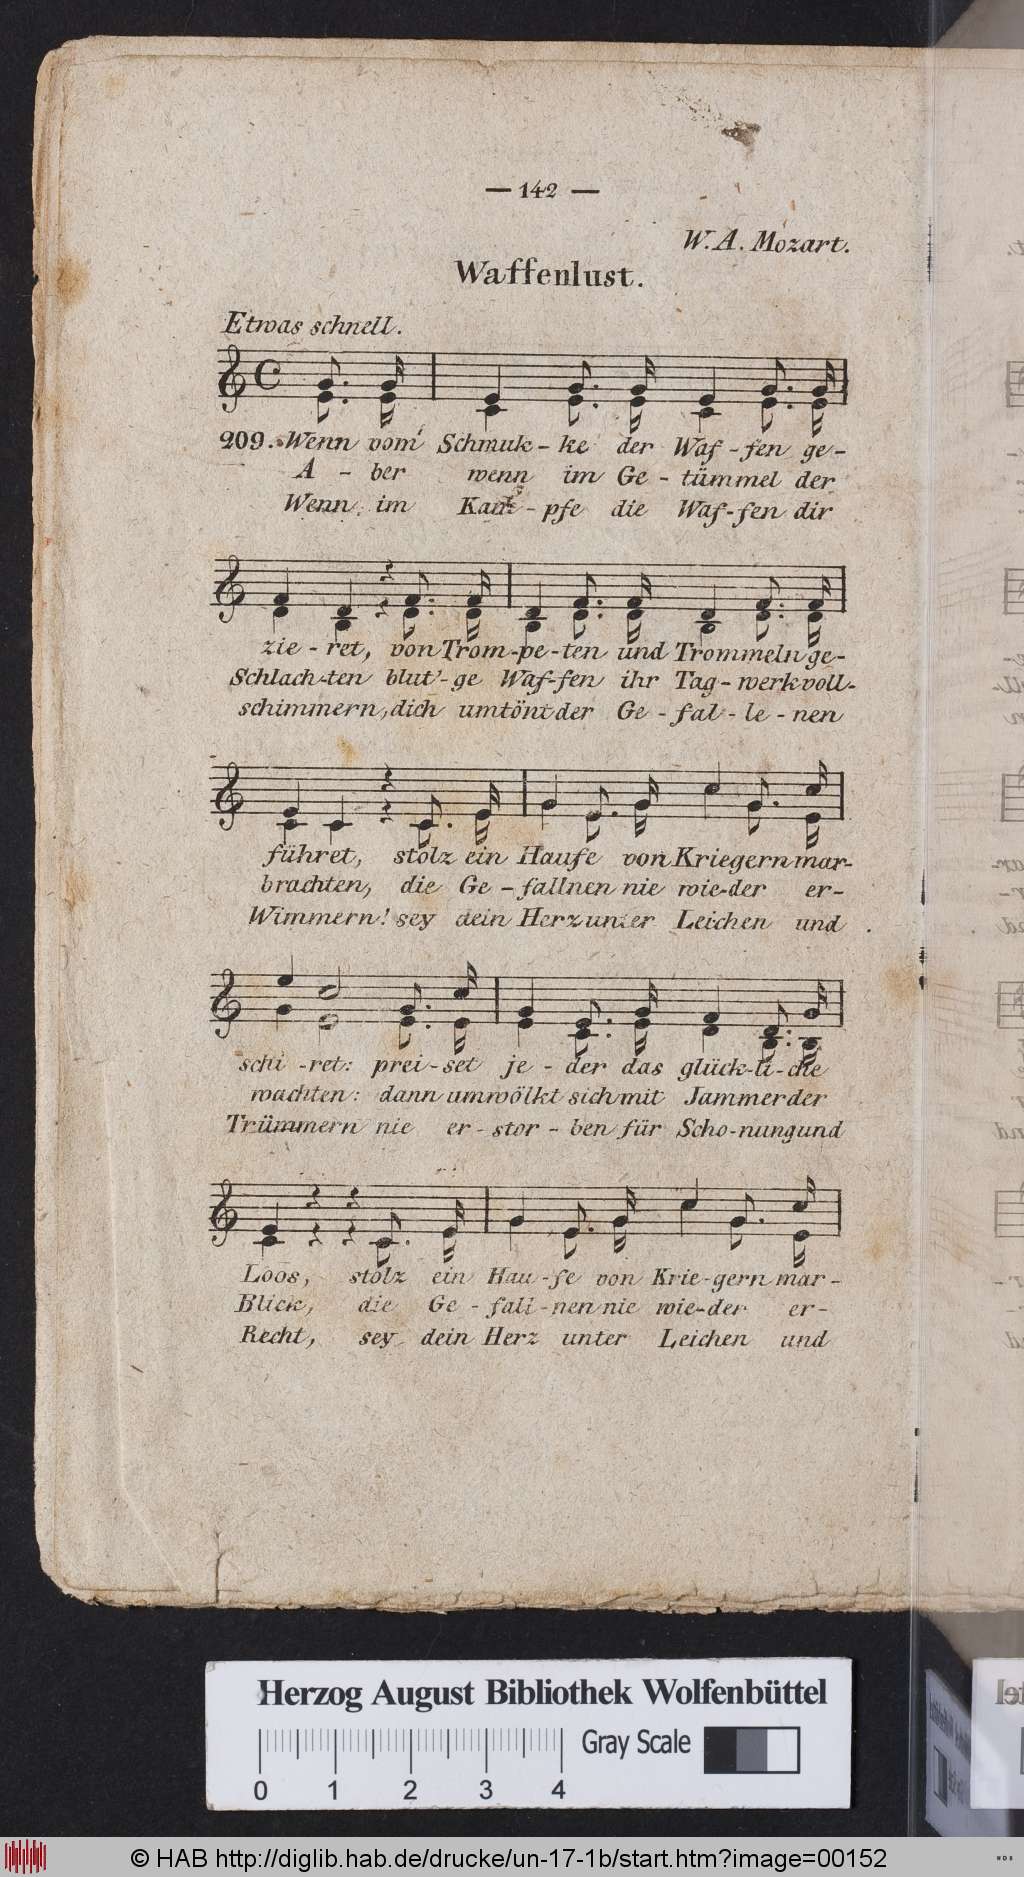 — 142 —
W. A. Mozart.
Waffenlust.
Etwas schnell.
209. Wenn vom Schmuk-ke der Waf-fen ge-
A-ber wenn im Ge-tümmel der
Wenn im Kam-pfe die Waf-fen dir
zie-ret, von Trom-pe-ten und Trommeln ge-
Schlach-ten blut'-ge Waf-fen ihr Tag-werk voll-
schimmern, dich umtönt der Ge-fal-le-nen
führet, stolz ein Haufe von Kriegern mar-
brachten, die Ge-fallnen nie wie-der er-
Wimmern! sey dein Herz unter Leichen und
schi-ret: prei-set je-der das glück-li-che
wachten: dann umwölkt sich mit Jammer der
Trümmern nie er-stor-ben für Scho-nung und
Loos, stolz ein Hau-fe von Krie-gern mar-
Blick, die Ge-fall-nen nie wie-der er-
Recht, sey dein Herz unter Leichen und
Herzog August Bibliothek Wolfenbüttel
Gray Scale
0 1 2 3 4
© HAB http://diglib.hab.de/drucke/un-17-1b/start.htm?image=00152